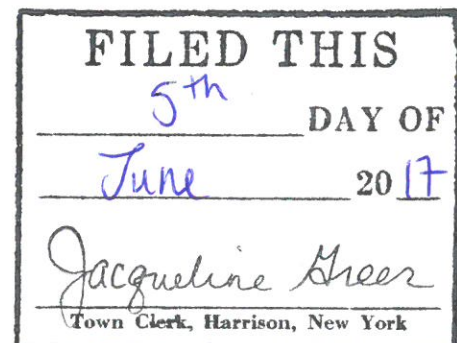 FILED THIS
5th DAY OF
June 2017
Jacqueline Greer
Town Clerk, Harrison, New York